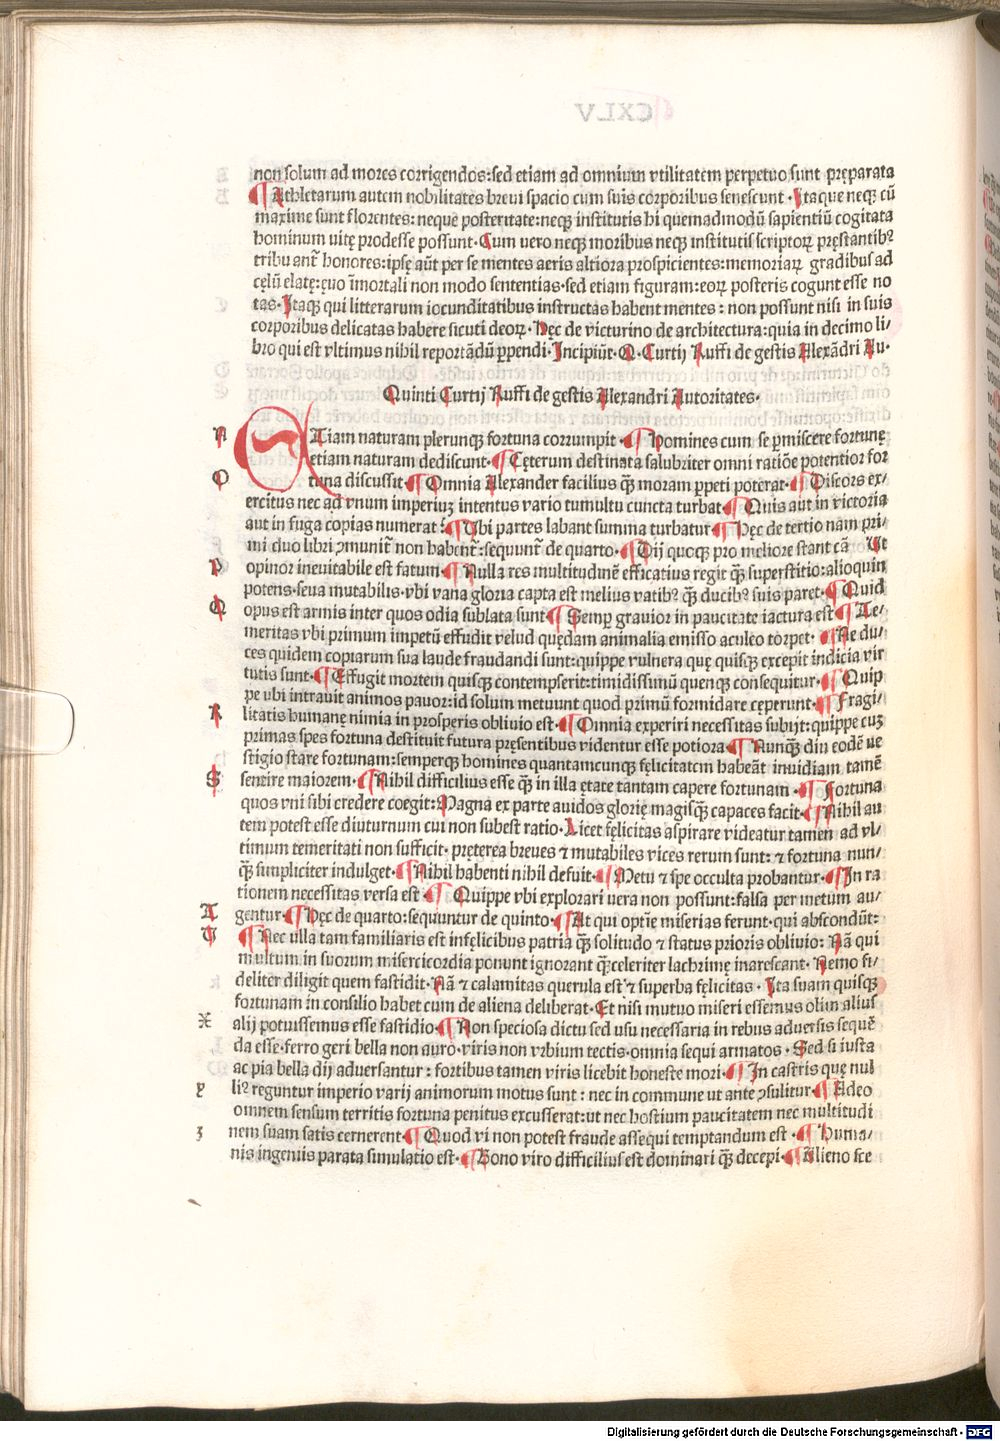 non solum ad mores corrigendos:sed etiam ad omnium vtilitatem perpetuo sunt pręparata
¶ Athletarum autem nobilitates breui spacio cum suis corporibus senescunt · Itaque neqꝫ cū
maxime sunt florentes: neque posteritate:neqꝫ institutis hi quemadmodū sapientiū cogitata
hominum uitę prodesse possunt· Cum uero neqꝫ moribus neqꝫ institutis scriptoꝝ pręstantibꝰ
tribuant̄ honores:ipsę aūt per se mentes aeris altiora prospicientes:memoriaꝝ gradibus ad
cęlū elatę:ęuo īmortali non modo sententias·sed etiam figuram:eoꝝ posteris cogunt esse no
tas· Itaqꝫ qui litterarum iocunditatibus instructas habent mentes : non possunt nisi in suis
corporibus delicatas habere sicuti deoꝝ· Hęc de victurino de architectura:quia in decimo li-
bro qui est vltimus nihil reportādū ꝑpendi· Incipiūt·Q·Curtij Ruffi de gestis Alexādri Au·
Quinti Curtij Ruffi de gestis Alexandri Autoritates·
ETiam naturam plerunqꝫ fortuna corrumpit ·¶ Homines cum se ꝑmiscere fortunę
etiam naturam dediscunt·¶ Cęterum destinata salubriter omni ratiōe potentior for
tuna discussit¶ Omnia Alexander facilius qꝫ̄ moram ꝑpeti poterat·¶ Discors ex/
ercitus nec ad vnum imperiuꝫ intentus vario tumultu cuncta turbat¶ Quis aut in victoria
aut in fuga copias numerat :¶ Ubi partes labant summa turbatur¶ Hęc de tertio nam pri/
mi duo libri ꝯmunit̄ non habent̄:sequunt̄ de quarto·¶ Dij quoqꝫ pro meliore stant cā Ut
opinor ineuitabile est fatum·¶ Nulla res multitudinē efficatius regit qꝫ̄ superstitio:alioquin
potens·seua mutabilis·vbi vana gloria capta est melius vatibꝰ qꝫ̄ ducibꝰ suis paret·¶ Quid
opus est armis inter quos odia sublata sunt¶ Semꝑ grauior in paucitate iactura est¶ Te/
meritas vbi primum impetū effudit velud quędam animalia emisso aculeo torpet· ¶ Ne du/
ces quidem copiarum sua laude fraudandi sunt:quippe vulnera quę quisqꝫ excepit indicia vir
tutis sunt·¶ Effugit mortem quisqꝫ contempserit:timidissimū quenqꝫ consequitur·¶ Quip
pe ubi intrauit animos pauor:id solum metuunt quod primū formidare cęperunt·¶ Fragi/
litatis humanę nimia in prosperis obliuio est·¶ Omnia experiri necessitas subijt:quippe cuꝫ
primas spes fortuna destituit futura pręsentibus videntur esse potiora¶ Nunqꝫ̄ diu eodē ue
stigio stare fortunam:semperqꝫ homines quantamcunqꝫ fęlicitatem habeāt inuidiam tamē
sentire maiorem·¶ Nihil difficilius esse qꝫ̄ in illa ętate tantam capere fortunam ·¶ Fortuna
quos vni sibi credere coegit:Magna ex parte auidos glorię magisqꝫ̄ capaces facit·¶ Nihil au
tem potest esse diuturnum cui non subest ratio· Licet fęlicitas aspirare videatur tamen ad vl/
timum temeritati non sufficit· pręterea breues ⁊ mutabiles vices rerum sunt: ⁊ fortuna nun/
qꝫ̄ simpliciter indulget·¶ Nihil habenti nihil defuit·¶ Metu ⁊ spe occulta probantur·¶ In ra
tionem necessitas versa est·¶ Quippe vbi explorari uera non possunt:falsa per metum au/
gentur·¶ Hęc de quarto:sequuntur de quinto·¶ At qui optīe miserias ferunt·qui abscondūt:
¶ Nec ulla tam familiaris est infęlicibus patria qꝫ̄ solitudo ⁊ status prioris obliuio: Nā qui
multum in suorum misercicordia ponunt ignorant qꝫ̄celeriter lachrimę inarescant· Nemo fi/
deliter diligit quem fastidit· Nā ⁊ calamitas querula est ⁊ superba fęlicitas · Ita suam quisqꝫ
fortunam in consilio habet cum de aliena deliberat· Et nisi mutuo miseri essemus olim alius
alij potuissemus esse fastidio·¶ Non speciosa dictu sed usu necessaria in rebus aduersis sequē
da esse·ferro geri bella non auro·viris non vrbium tectis·omnia sequi armatos · Sed si iusta
ac pia bella dij aduersantur : fortibus tamen viris licebit honeste mori·¶ In castris quę nul
liꝰ reguntur imperio varij animorum motus sunt : nec in commune ut ante ꝯsulitur¶ Adeo
omnem sensum territis fortuna penitus excusserat:ut nec hostium paucitatem nec multitudi
nem suam satis cernerent·¶ Quod vi non potest fraude assequi temptandum est ·¶ Huma/
nis ingeniis parata simulatio est·¶ Bono viro difficilius est dominari qꝫ̄ decepi·¶ Alieno sce
N
O
P
Q
R
S
T
V
X
Y
Z
Digitalisierung gefördert durch die Deutsche Forschungsgemeinschaft - DFG